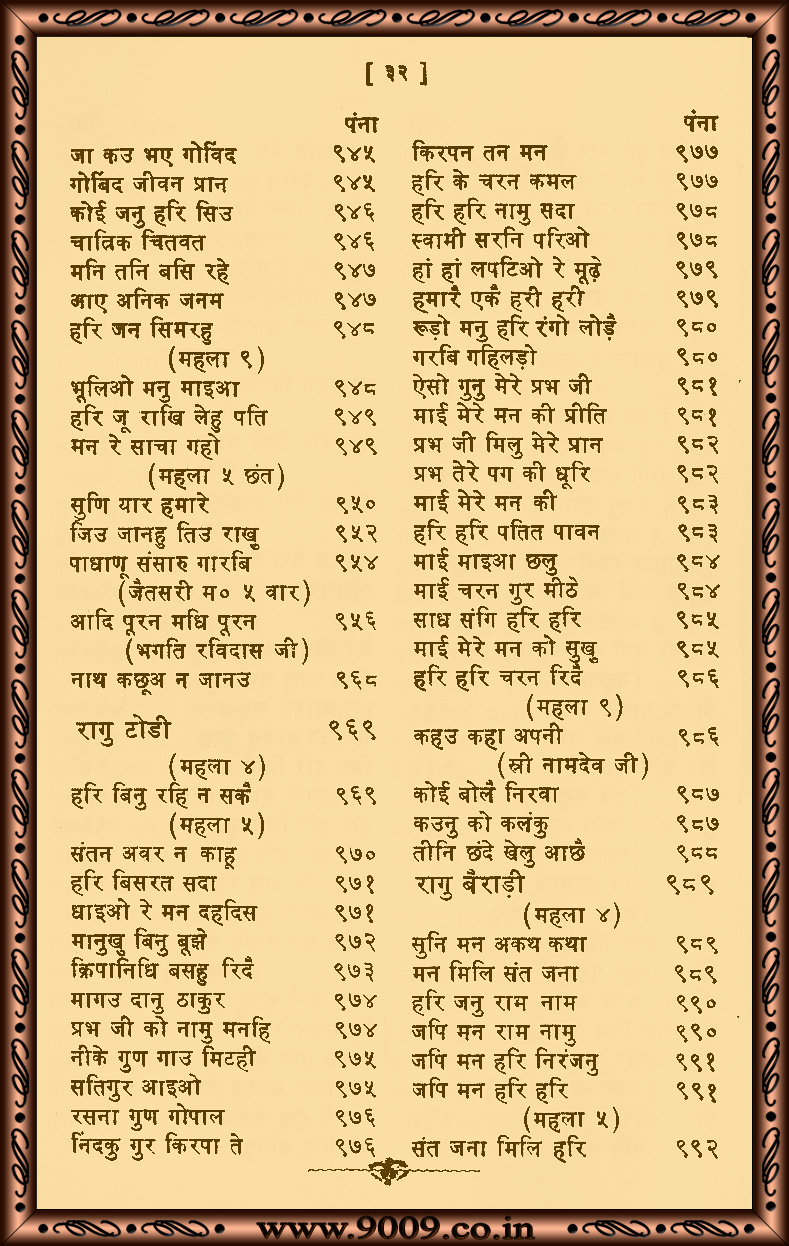 [ ३२ ]
पंना
जा कउ भए गोविंद ९४५
गोबिंद जीवन प्रान ९४५
कोई जनु हरि सिउ ९४६
चात्रिक चितवत ९४६
मनि तनि बसि रहे ९४७
आए अनिक जनम ९४७
हरि जन सिमरहु ९४८
(महला ९)
भूलिओ मनु माइआ ९४८
हरि जू राखि लेहु पति ९४९
मन रे साचा गहो ९४९
(महला ५ छंत)
सुणि यार हमारे ९५०
जिउ जानहु तिउ राखु ९५२
पाधाणू संसारु गारबि ९५४
(जैतसरी म० ५ वार)
आदि पूरन मधि पूरन ९५६
(भगति रविदास जी)
नाथ कछूअ न जानउ ९६८
रागु टोडी ९६९
(महला ४)
हरि बिनु रहि न सकै ९६९
(महला ५)
संतन अवर न काहू ९७०
हरि बिसरत सदा ९७१
धाइओ रे मन दहदिस ९७१
मानुखु बिनु बूझे ९७२
क्रिपानिधि बसहु रिदै ९७३
मागउ दानु ठाकुर ९७४
प्रभ जी को नामु मनहि ९७४
नीके गुण गाउ मिटही ९७५
सतिगुर आइओ ९७५
रसना गुण गोपाल ९७६
निंदकु गुर किरपा ते ९७६
पंना
किरपन तन मन ९७७
हरि के चरन कमल ९७७
हरि हरि नामु सदा ९७८
स्वामी सरनि परिओ ९७८
हां हां लपटिओ रे मूढ़े ९७९
हमारै एकै हरी हरी ९७९
रूड़ो मनु हरि रंगो लोड़ै ९८०
गरबि गहिलड़ो ९८०
ऐसो गुनु मेरे प्रभ जी ९८१
माई मेरे मन की प्रीति ९८१
प्रभ जी मिलु मेरे प्रान ९८२
प्रभ तेरे पग की धूरि ९८२
माई मेरे मन की ९८३
हरि हरि पतित पावन ९८३
माई माइआ छलु ९८४
माई चरन गुर मीठे ९८४
साध संगि हरि हरि ९८५
माई मेरे मन को सुखु ९८५
हरि हरि चरन रिदै ९८६
(महला ९)
कहउ कहा अपनी ९८६
(स्री नामदेव जी)
कोई बोलै निरवा ९८७
कउनु को कलंकु ९८७
तीनि छंदे खेलु आछै ९८८
रागु बैराड़ी ९८९
(महला ४)
सुनि मन अकथ कथा ९८९
मन मिलि संत जना ९८९
हरि जनु राम नाम ९९०
जपि मन राम नामु ९९०
जपि मन हरि निरंजनु ९९१
जपि मन हरि हरि ९९१
(महला ५)
संत जना मिलि हरि ९९२
www.9009.co.in